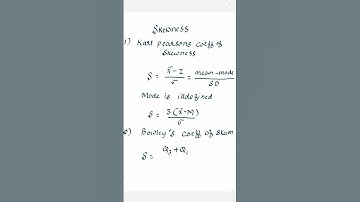 Skewness
1) Karl pearsons coeff of
Skewness
S = x̄ - Z / σ = mean - mode / SD
Mode is illdefined
S = 3(x̄ - M) / σ
2) Bowley's coeff of Skew
S = Q₃ + Q₁